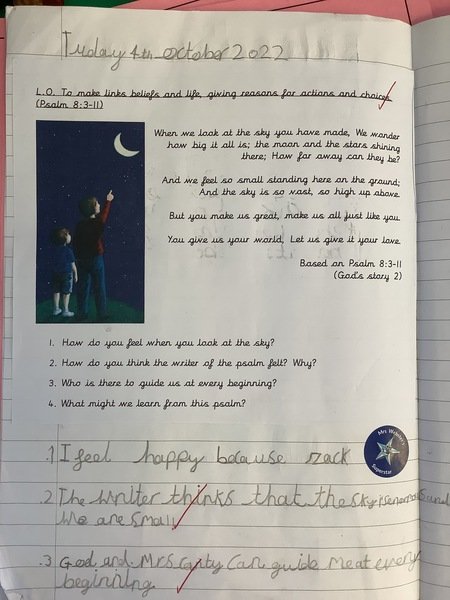 Tuday 4th october 2022
L.O. To make links beliefs and life, giving reasons for actions and choices
(Psalm 8:3-11)
When we look at the sky you have made, We wonder
how big it all is; the moon and the stars shining
there; How far away can they be?
And we feel so small standing here on the ground;
And the sky is so vast, so high up above.
But you make us great, make us all just like you.
You give us your world, Let us give it your love.
Based on Psalm 8:3-11
(God's story 2)
1. How do you feel when you look at the sky?
2. How do you think the writer of the psalm felt? Why?
3. Who is there to guide us at every beginning?
4. What might we learn from this psalm?
Mrs
Superstar
.1 I feel happy because
.2 The writer thinks that the sky is and
we are small
.3 God and Mrs Can guide me at every
beginning.